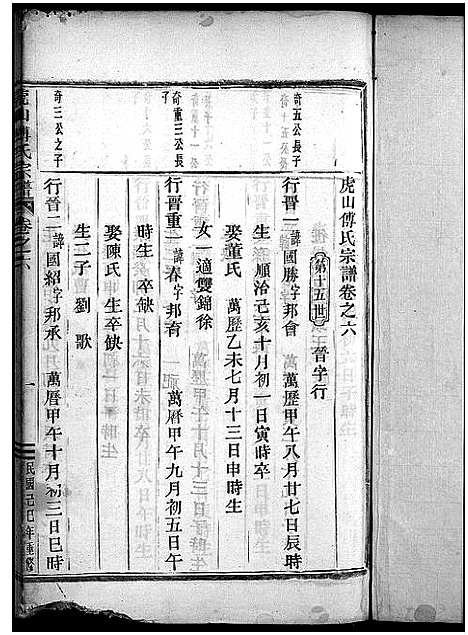 虎山傅氏宗譜卷之六
第十五世 晉字行
奇五公長子
行晉二 諱國勝字邦會 萬歷甲午八月廿七日辰時
生 順治己亥十月初一日寅時卒
娶董氏 萬歷乙未七月十三日申時生
女一適雙錦徐
奇重三公長子
行晉重二 諱春字邦育 萬曆甲午九月初五日午
時生 卒缺
娶陳氏 生卒缺
生二子 劉 歌
奇三公之子
行晉二 諱國紹字邦承 萬曆甲午十月初三日巳時
虎山傅氏宗譜 卷之六 一 民國己巳年重修